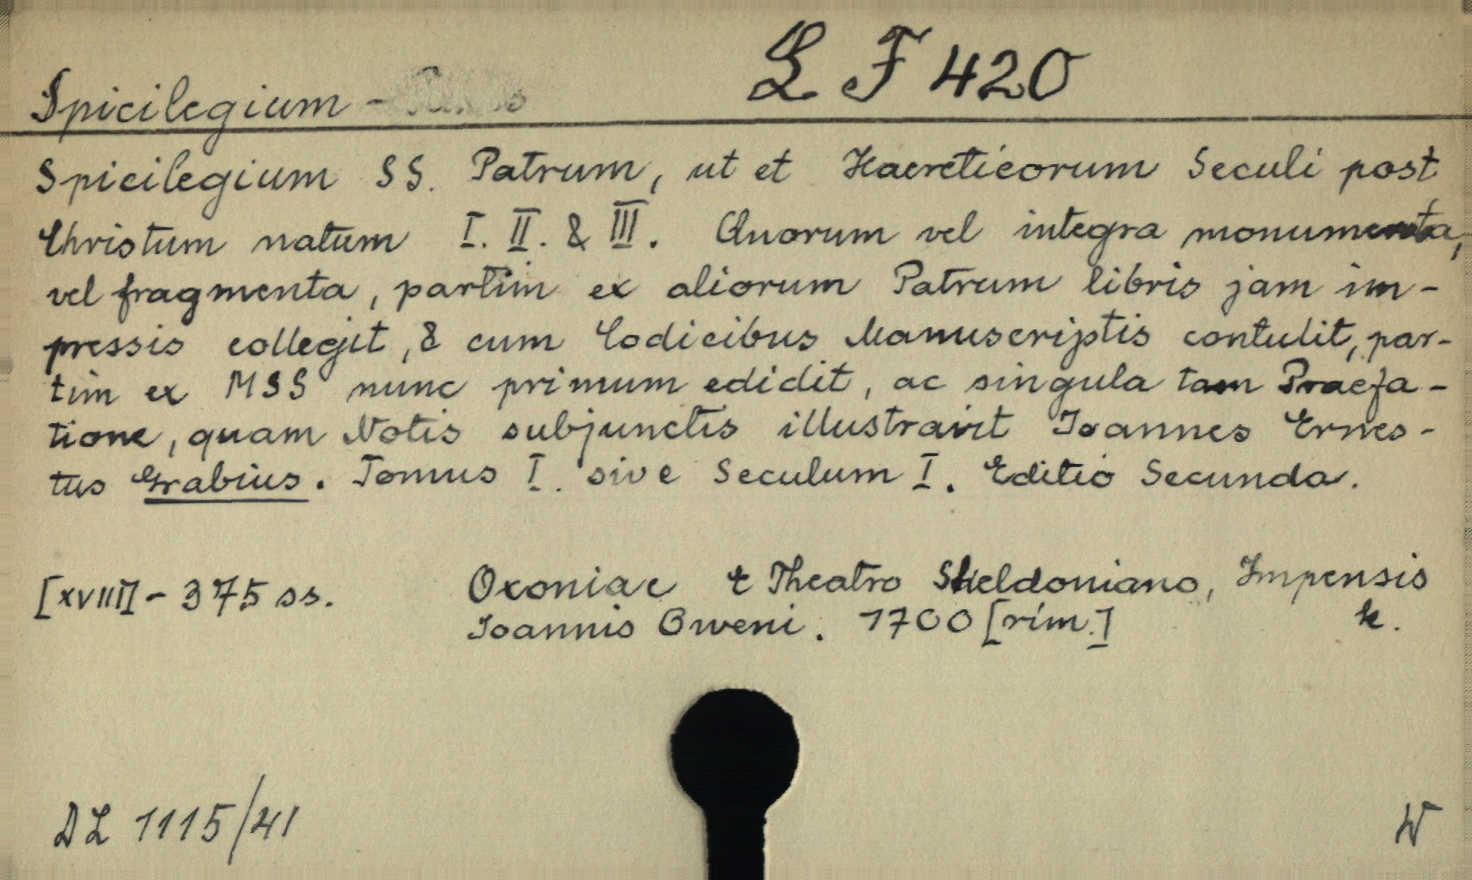 L F 420
Spicilegium -
Spicilegium SS. Patrum, ut et Haereticorum Seculi post
Christum natum I. II. & III. Quorum vel integra monumenta,
vel fragmenta, partim ex aliorum Patrum libris jam im-
pressis collegit, & cum Codicibus Manuscriptis contulit, par-
tim ex MSS nunc primum edidit, ac singula tam Praefa-
tione, quam Notis subjunctis illustravit Joannes Ernes-
tus Grabius. Tomus I. sive Seculum I. Editio Secunda.
[XVIII] - 375 ss. Oxoniae e Theatro Sheldoniano, Impensis
Joannis Oweni. 1700 [rím.] k.
DL 1115/41 W